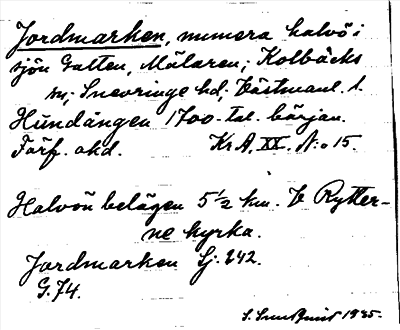 Jordmarken, numera halvö i
sjön Gatten, Mälaren; Kolbäcks
sn; Snevringe hd, Västmanl. l.
Hundängen 1700-tal. början.
Förf. okd. KrA. XX. N:o 15.
Halvön belägen 5 1/2 km. V Rytter-
ne kyrka.
Jordmarken Lj. 242.
G. 74.
1935.